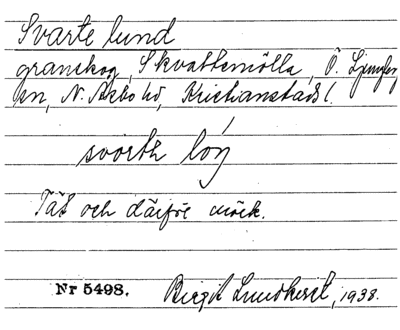 Svarte lund
granskog, Skvattemölla, Ö. Ljungby
sn, N. Åsbo hd, Kristianstads l.
svarth
Tät och därför mörk.
Nr 5498. Birgit Lundkvist, 1938.